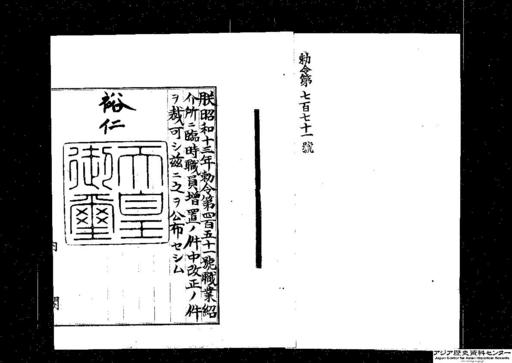 勅令第七百七十一號
朕昭和十三年勅令第四百五十一號職業紹
介所ニ臨時職員増置ノ件中改正ノ件
ヲ裁可シ茲ニ之ヲ公布セシム
裕仁
天皇
御璽
アジア歴史資料センター
Japan Center for Asian Historical Records